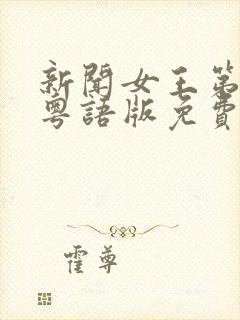 新聞女王第
粵語版免費
霍尊